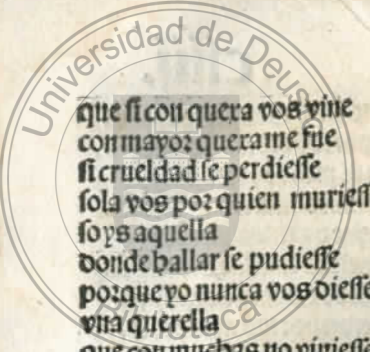 Universidad de Deusto
que si con quexa vos vine
con mayor quexa me fue
si crueldad se perdiesse
sola vos por quien muriess
soys aquella
donde hallar se pudiesse
porque yo nunca vos diesse
vna querella
que con muchas no viniesse
Biblioteca